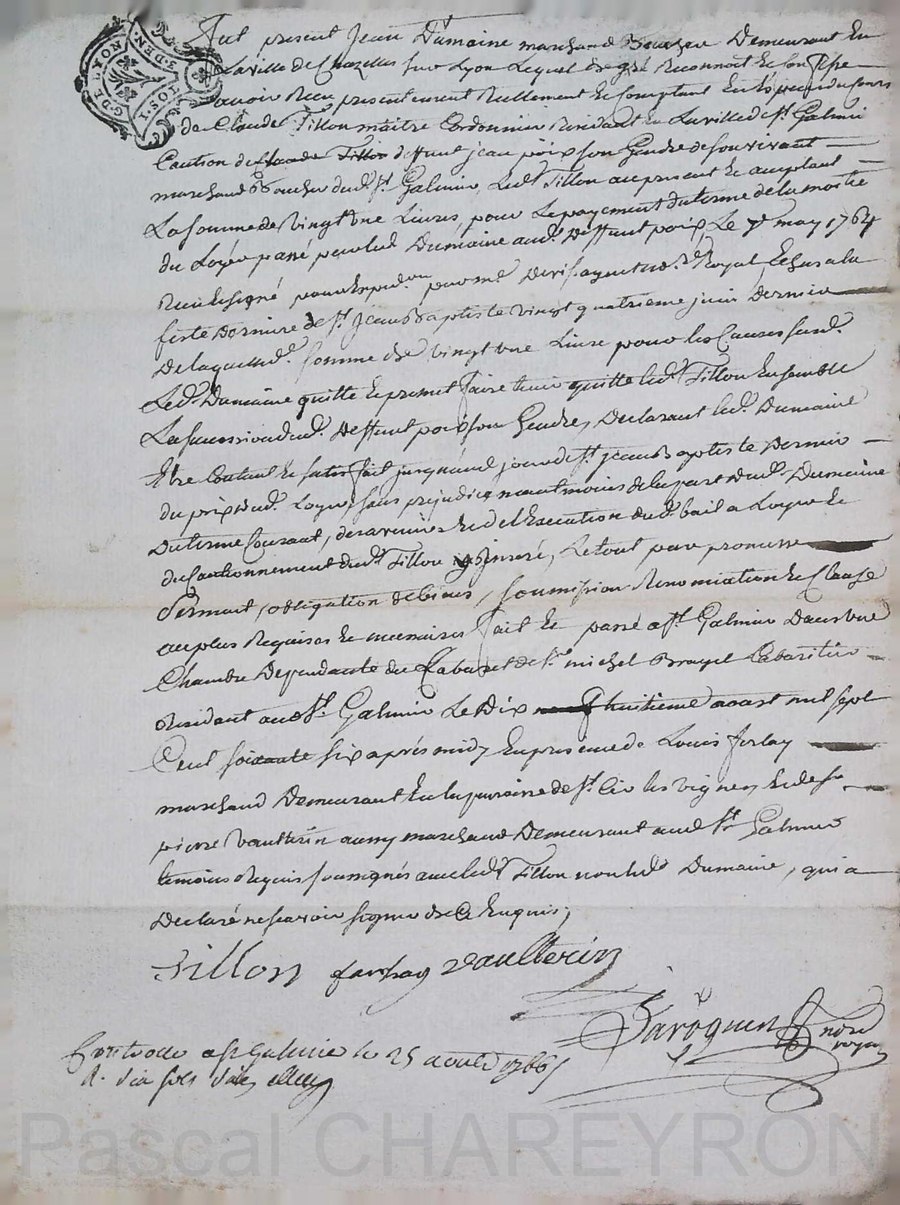 G. DE LYON
3. DEN.
Fut present Jean Dumaine marchand Boucher Demeurant En
La ville de Chazelles sur Lyon Lequel de gré Reconnoit et Confesse
avoir Reçu presentement Reellement et Comptant En Especes du Cours
de Claude Tillon maitre Cordonnier Residant En La ville de St. Galmier
Caution de Claude Tillon deffunt jean poix son Gendre de son vivant
marchand Boucher dud. St. Galmier, Led. Tillon au present et acceptant
La somme de vingt une Livres, pour Le payement du terme de la moitié
du Loyer passé par led Dumaine aud. Deffunt poix, Le 7e may 1764
Reçu Et signé par no. Royal Echus a la
feste Derniere de St. jean Baptiste vingt quatrieme juin Dernier
De laquelle d. somme de vingt une Livre pour les Causes susd.
Led. Dumaine quitte et promet faire tenir quitte led. Tillon Ensemble
La succession dud. Deffunt poix son Gendre, Declarant led. Dumaine
Etre Content et satisfait jusqu'aud jour de St. jean Baptiste Dernier
du prix dud. Loyer, sans prejudice neantmoins de la part dud. Dumaine
Du terme Courant, des avenirs et de l'Execution du d. bail a Loyer et
du Cautionnement dud. Tillon y Inseré, Le tout par promesse
serment, obligation de biens, soumission Renonciation et Clause
au plus Requises et necessaires fait et passé a St. Galmier Dans une
Chambre Dependante du Cabaret de Sr. michel Brayet Cabaretier
Residant aud St. Galmier Le Dix huitieme aoust mil sept
Cent soixante six après midy En presence de Louis ferlay
marchand Demeurant En la paroisse de St. Cir les vignes et de Sr.
pierre Vaultrin aussy marchand Demeurant aud St. Galmier
temoins Requis soussignés avec led. Tillon non led. Dumaine, qui a
Declaré ne sçavoir signer de Ce Enquis,
Tillon ferlay Vaulterin
Baroquin no.re royal
Controllé a St Galmier le 25 aoust 1766
R. six sols six den
Pascal CHAREYRON